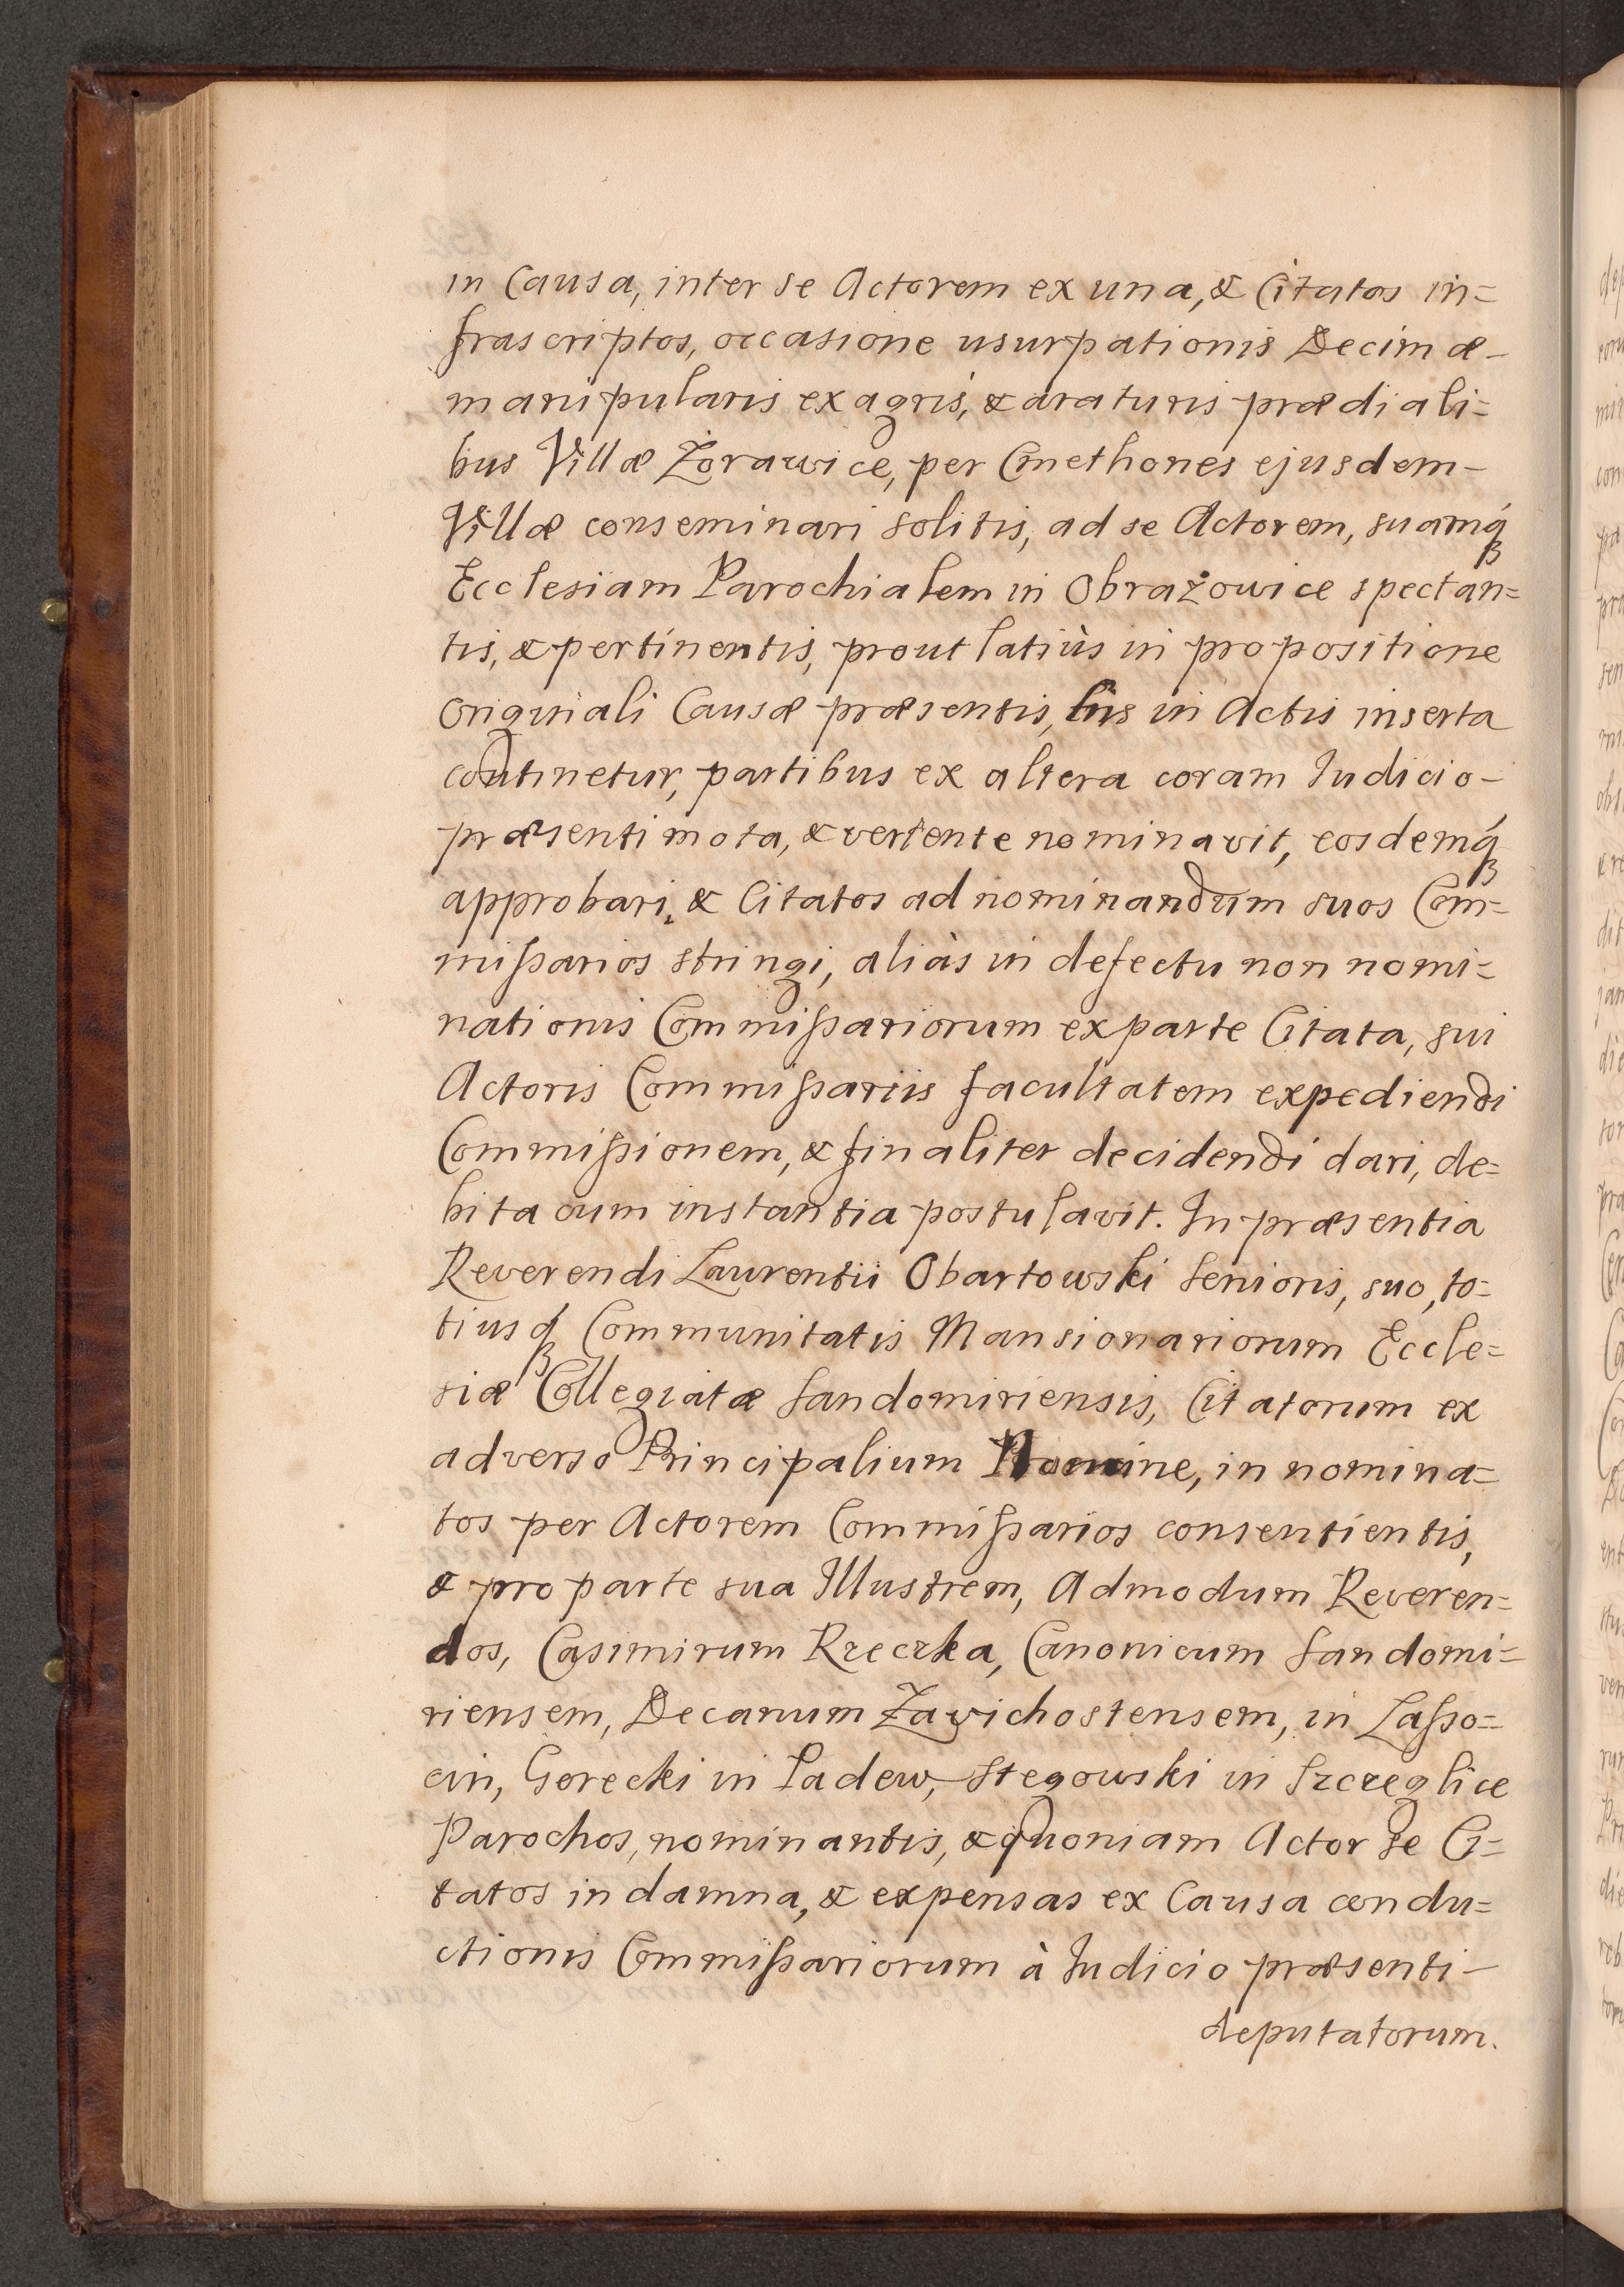 in Causa, inter se Actorem ex una, & Citatos in=
frascriptos, occasione usurpationis Decimæ-
manipularis ex agris, & araturis prædiali=
bus Villæ Żorawice, per Cmethones ejusdem-
Villæ conseminari solitis, ad se Actorem, suamq́ꝫ
Ecclesiam Parochialem in Obrażowice spectan=
tis, & pertinentis, prout latiùs in propositione
originali Causæ præsentis, his in Actis inserta
continetur, partibus ex altera coram Iudicio-
præsenti mota, & vertente nominavit, eosdemq́ꝫ
approbari, & Citatos ad nominandum suos Com=
mißarios stringi, aliàs in defectu non nomi=
nationis Commißariorum ex parte Citata, sui
Actoris Commißariis facultatem expediendi
Commißionem, & finaliter decidendi dari, de=
bita cum instantia postulavit. In præsentia
Reverendi Laurentii Obartowski Senioris, suo, to=
tiusq́ꝫ Communitatis Mansionariorum Eccle=
siæ Collegiatæ Sandomiriensis, Citatorum ex
adverso Principalium Nomine, in nomina=
tos per Actorem Commißarios consentientis,
& pro parte sua Illustrem, Admodum Reveren=
dos, Casimirum Rzeczka, Canonicum Sandomi=
riensem, Decanum Zavichostensem, in Laßo=
cin, Gorecki in Padew, Stegowski in Szczeglice
Parochos, nominantis, & quoniam Actor se Ci=
tatos in damna, & expensas ex Causa condu=
ctionis Commißariorum à Iudicio præsenti-
deputatorum.